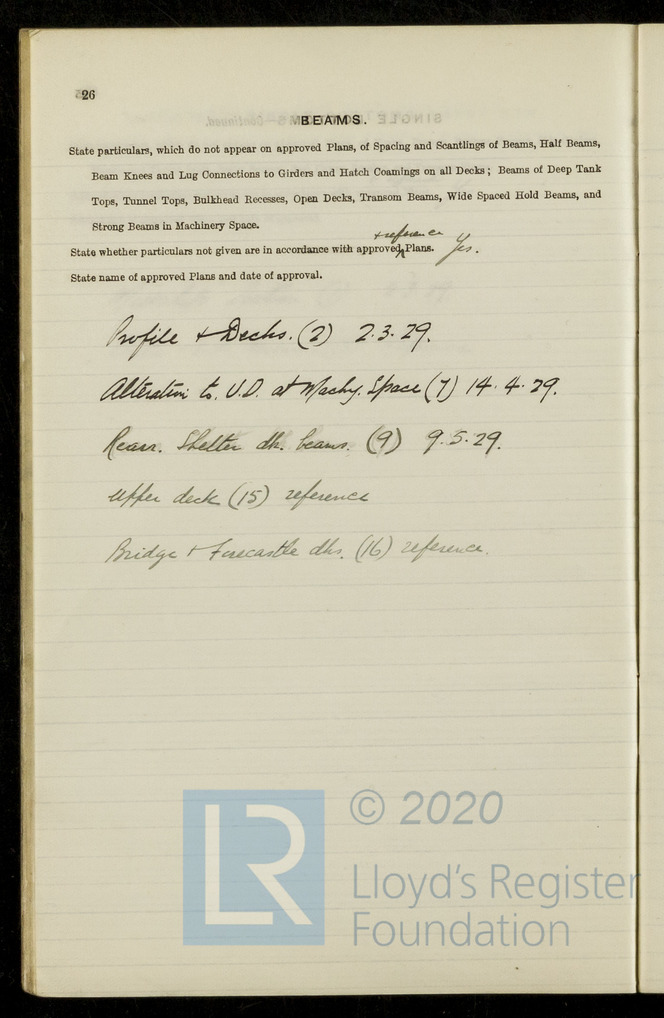 26
BEAMS.
State particulars, which do not appear on approved Plans, of Spacing and Scantlings of Beams, Half Beams,
Beam Knees and Lug Connections to Girders and Hatch Coamings on all Decks; Beams of Deep Tank
Tops, Tunnel Tops, Bulkhead Recesses, Open Decks, Transom Beams, Wide Spaced Hold Beams, and
Strong Beams in Machinery Space.
+ reference
State whether particulars not given are in accordance with approved Plans. Yes.
State name of approved Plans and date of approval.
Profile + Decks. (2) 2.3.29.
Alteration to U.D. at Machy. Space (7) 14.4.29.
Rearr. Shelter dk. beams. (9) 9.5.29.
Upper deck (15) reference
Bridge + Forecastle dks. (16) reference.
LR
© 2020
Lloyd's Register
Foundation